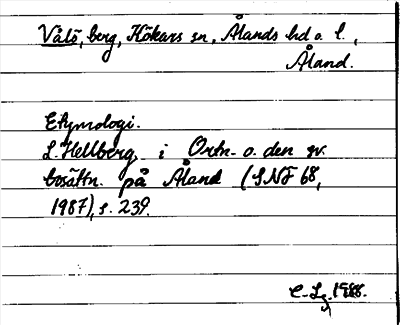 Vålö, berg, Kökars sn, Ålands hd o. l.,
Åland.
Etymologi.
L. Hellberg, i Ortn. o. den sv.
bosättn. på Åland (SNF 68,
1987), s. 239.
C-Lg. 1988.